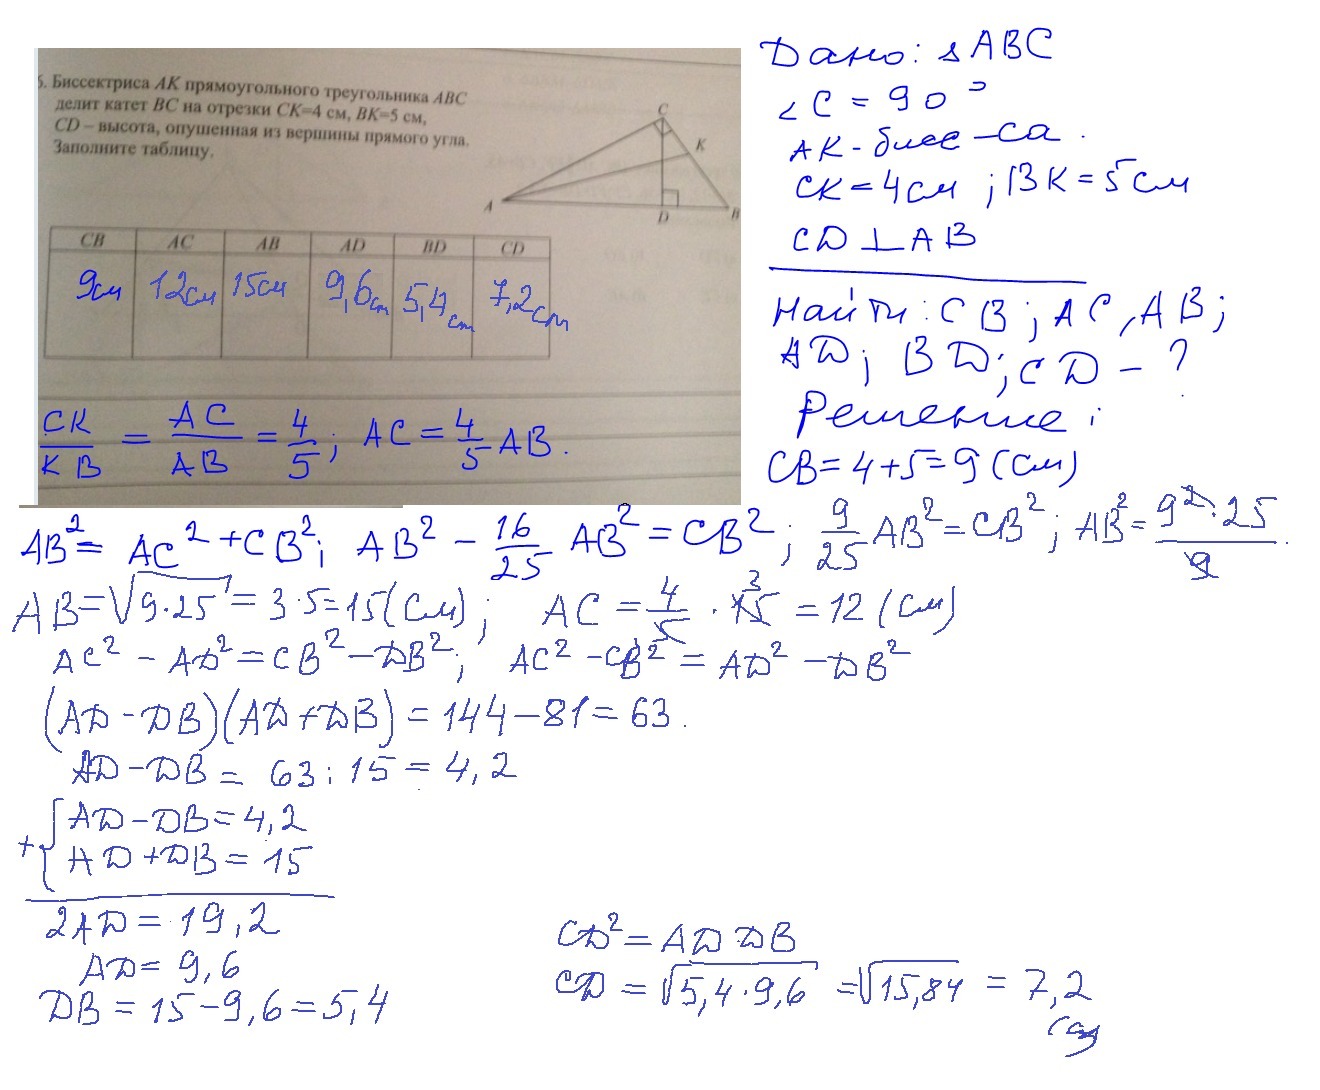 5. Биссектриса АК прямоугольного треугольника АВС
делит катет ВС на отрезки СК=4 см, ВК=5 см,
CD – высота, опушенная из вершины прямого угла.
Заполните таблицу.
C
K
A
D
B
CB AC AB AD BD CD
9см 12см 15см 9,6см 5,4см 7,2см
CK/KB = AC/AB = 4/5; AC = 4/5 AB.
Дано: ▵ABC
∠C = 90°
AK - бисс-са.
CK = 4см; BK = 5см
CD ⊥ AB
Найти: CB; AC, AB;
AD; BD; CD - ?
Решение:
CB = 4+5 = 9 (см)
AB² = AC² + CB²; AB² - 16/25 AB² = CB²; 9/25 AB² = CB²; AB² = 9²·25/9.
AB = √9·25 = 3·5 = 15 (см); AC = 4/5 · 15 3 = 12 (см)
AC² - AD² = CB² - DB²; AC² - CB² = AD² - DB²
(AD - DB)(AD + DB) = 144 - 81 = 63.
AD - DB = 63 : 15 = 4,2
+ { AD - DB = 4,2
AD + DB = 15
2AD = 19,2
AD = 9,6
DB = 15 - 9,6 = 5,4
CD² = AD DB
CD = √5,4·9,6 = √15,84 = 7,2
(см)